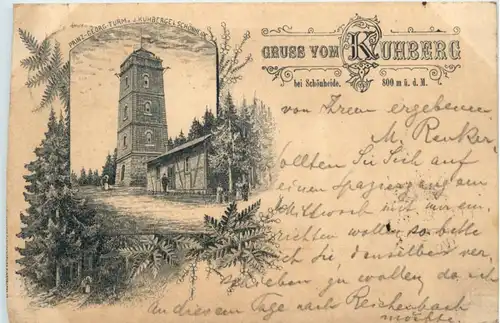 PRINZ-GEORG-TURM A.D. KUHBERGE B. SCHÖNHEIDE
GRUSS VOM KUHBERG
bei Schönheide. 800 m ü. d. M.
von Ihrem ergebenen
M.
Sollten Sie Sich auf
einen Spaziergang am
Mittwoch mit mir ein
richten wollen so bitte
ich Sie, denselben ver
schieben zu wollen da ich
an diesem Tage nach Reichenbach
möchte.